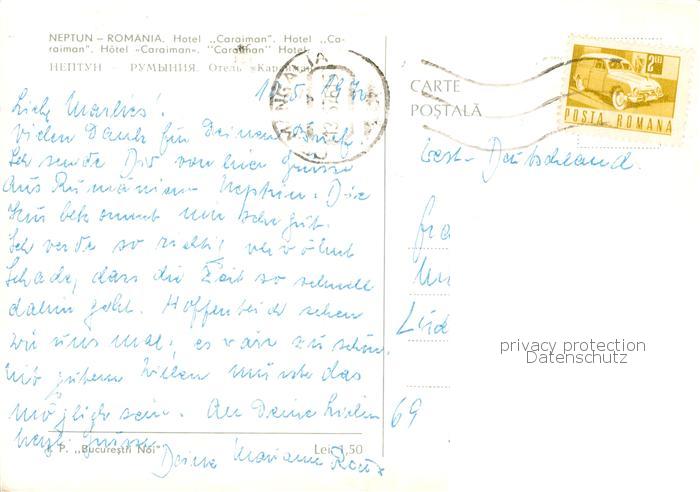 NEPTUN – ROMANIA. Hotel „Caraiman". Hotel „Ca-
raiman". Hôtel «Caraiman». "Caraiman" Hotel
НЕПТУН – РУМЫНИЯ. Отель «Караиман»
MANGALIA
CARTE
POȘTALĂ
2 LEI
POSTA ROMANA
Liebe Marlies!
Vielen Dank für Deinen Brief.
Ich sende Dir von hier Grüsse
aus Rumänien Neptun. Die
Kur bekommt mir sehr gut.
Ich werde so richtig verwöhnt
Schade, dass die Zeit so schnell
dahin geht. Hoffentlich sehen
wir uns mal, es wär zu schön.
mit gutem Willen müsste das
möglich sein. An Deine Lieben
herzl. Grüsse
Deine Marianne
West-Deutschland.
69
I. P. „Bucureștii Noi"
Lei 1,50
privacy protection
Datenschutz